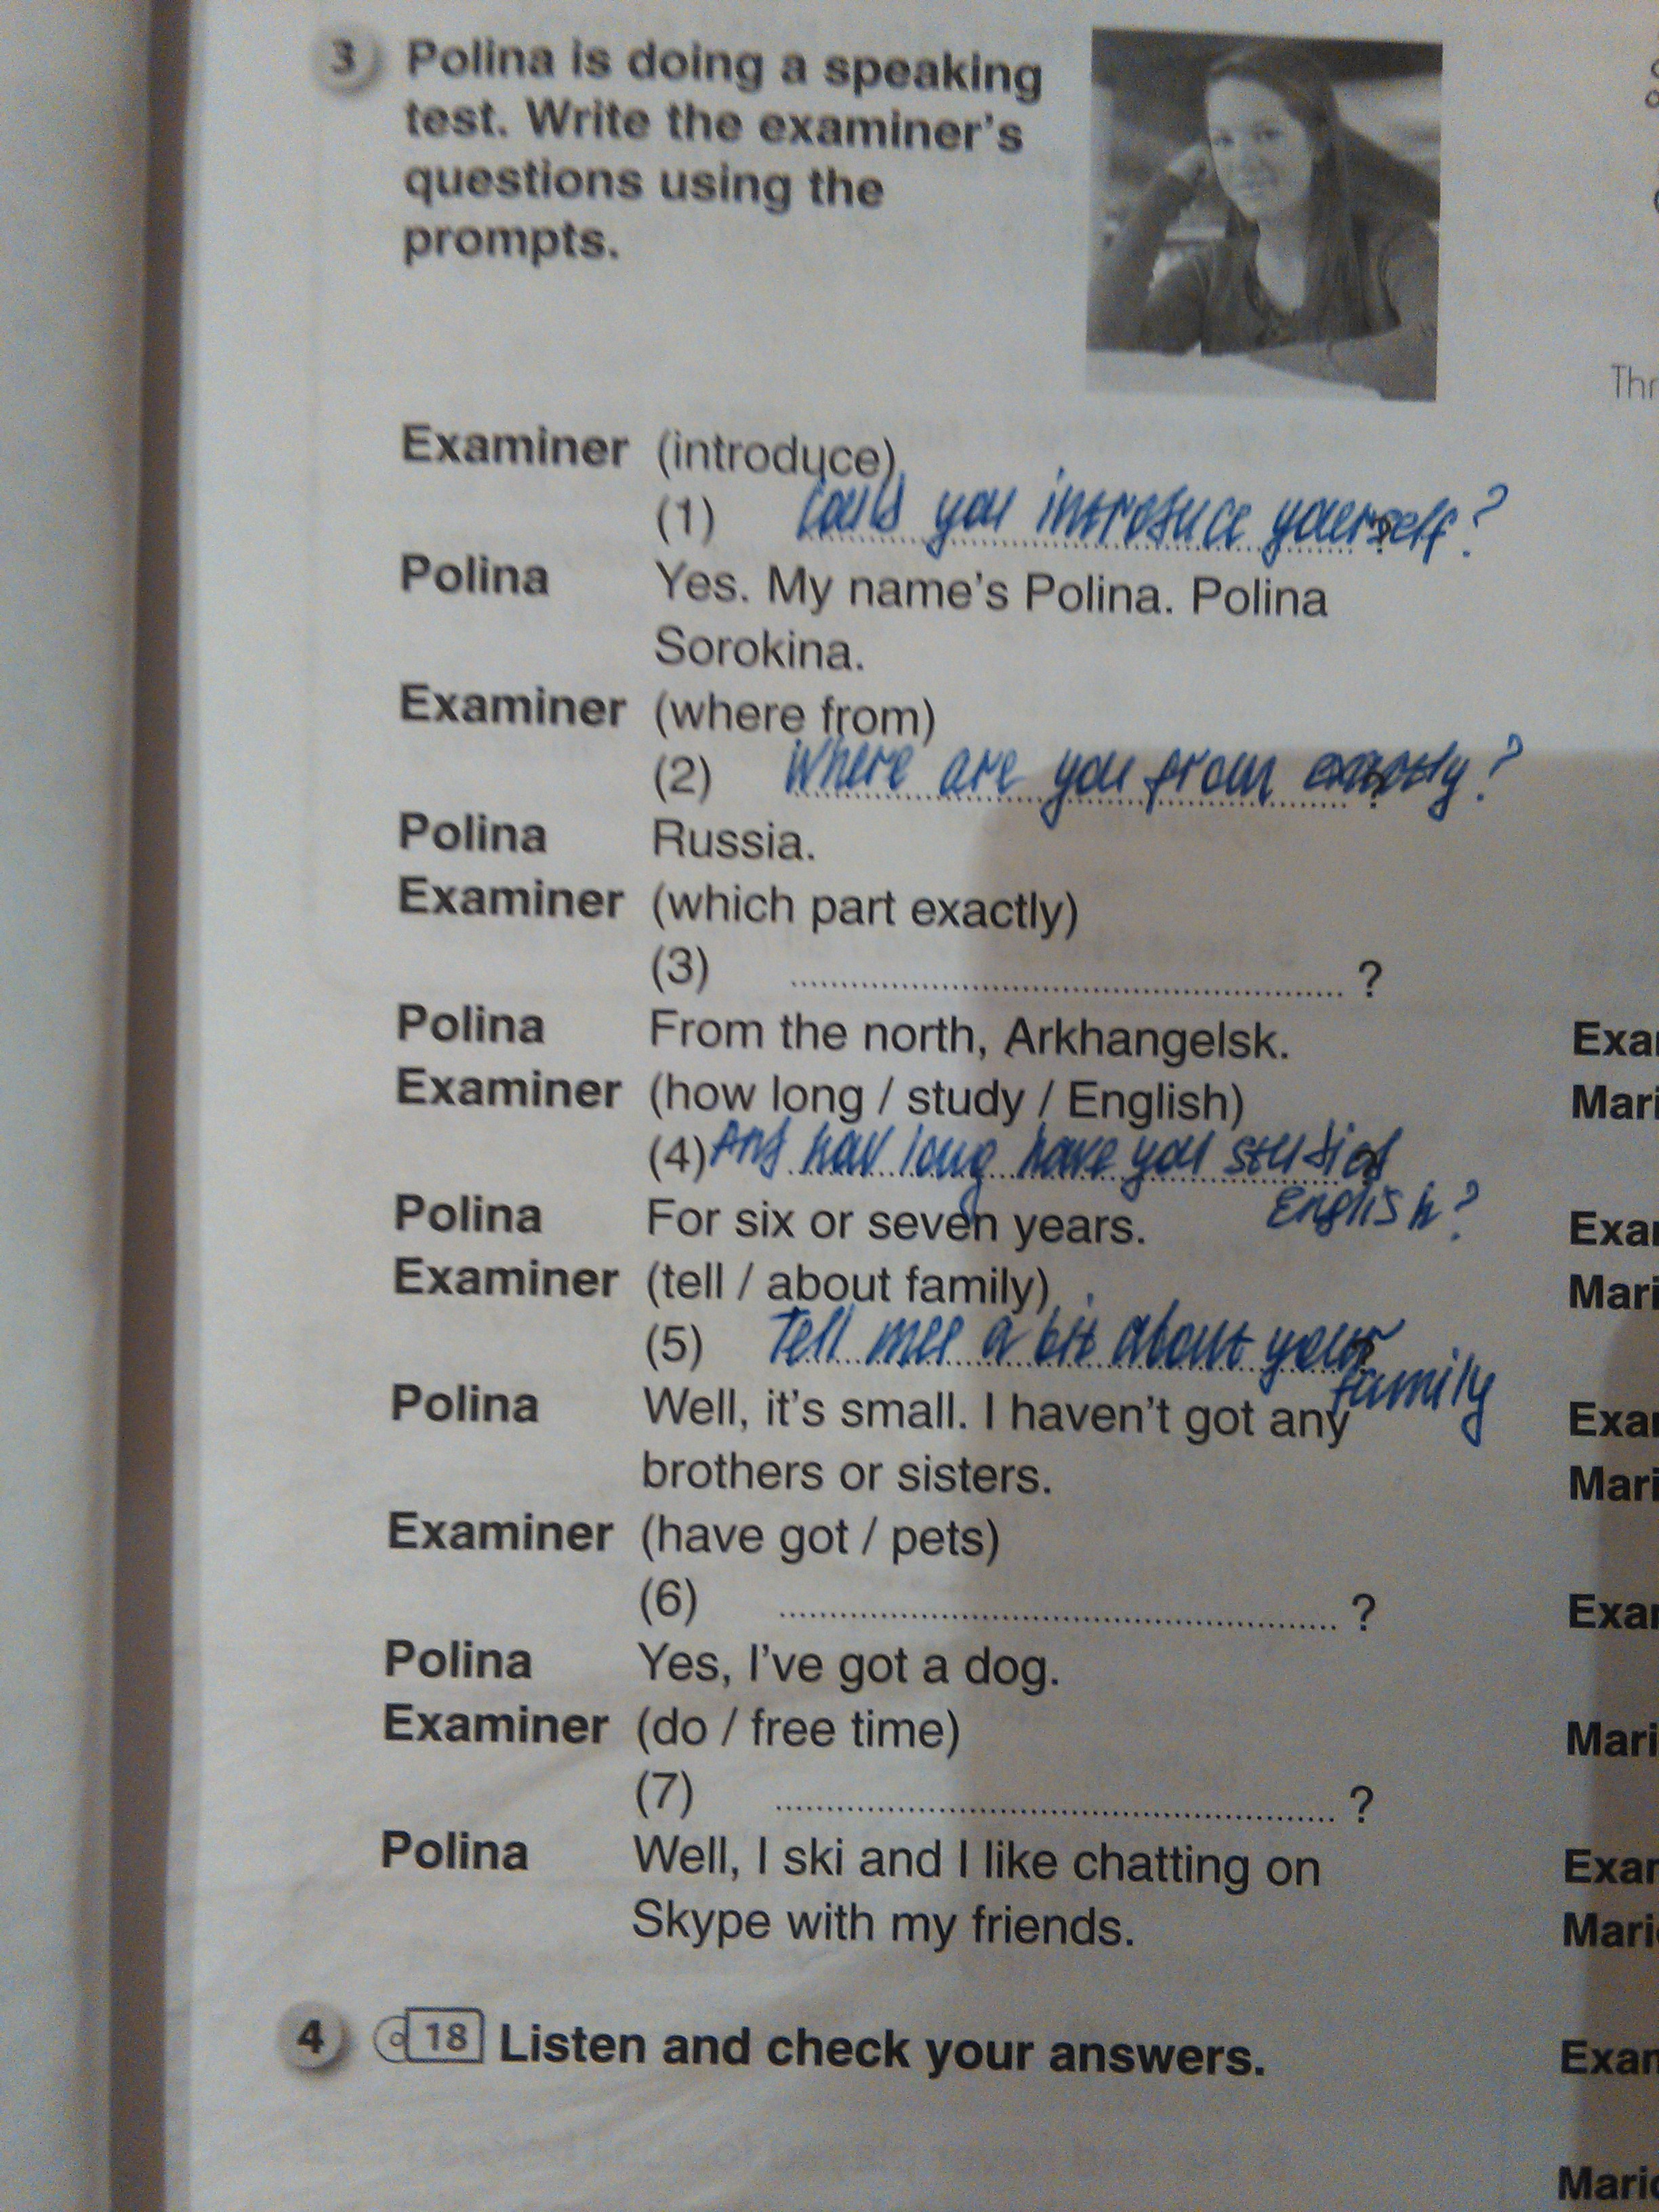 3 Polina is doing a speaking
test. Write the examiner's
questions using the
prompts.
Examiner (introduce)
(1) Could you introduce yourself?
Polina Yes. My name's Polina. Polina
Sorokina.
Examiner (where from)
(2) Where are you from exactly?
Polina Russia.
Examiner (which part exactly)
(3) ........................ ?
Polina From the north, Arkhangelsk.
Examiner (how long / study / English)
(4) And how long have you studied
English?
Polina For six or seven years.
Examiner (tell / about family)
(5) Tell mee a bit about your
family
Polina Well, it's small. I haven't got any
brothers or sisters.
Examiner (have got / pets)
(6) ........................ ?
Polina Yes, I've got a dog.
Examiner (do / free time)
(7) ........................ ?
Polina Well, I ski and I like chatting on
Skype with my friends.
4 18 Listen and check your answers.
Thr
Exa
Mari
Exa
Mari
Exa
Mari
Exa
Mari
Exa
Mari
Exa
Mari